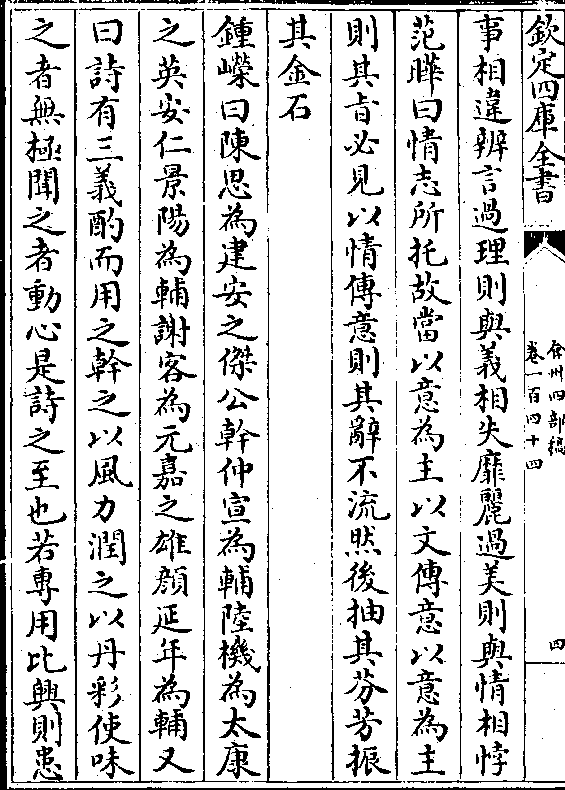 欽定四庫全書
弇州四部稿
卷一百四十四
四
事相違辨言過理則與義相失靡麗過美則與情相悖
范曄曰情志所托故當以意為主以文傳意以意為主
則其旨必見以情傳意則其辭不流然後抽其芬芳振
其金石
鍾嶸曰陳思為建安之傑公幹仲宣為輔陸機為太康
之英安仁景陽為輔謝客為元嘉之雄顏延年為輔又
曰詩有三義酌而用之幹之以風力潤之以丹彩使味
之者無極聞之者動心是詩之至也若專用比興則患